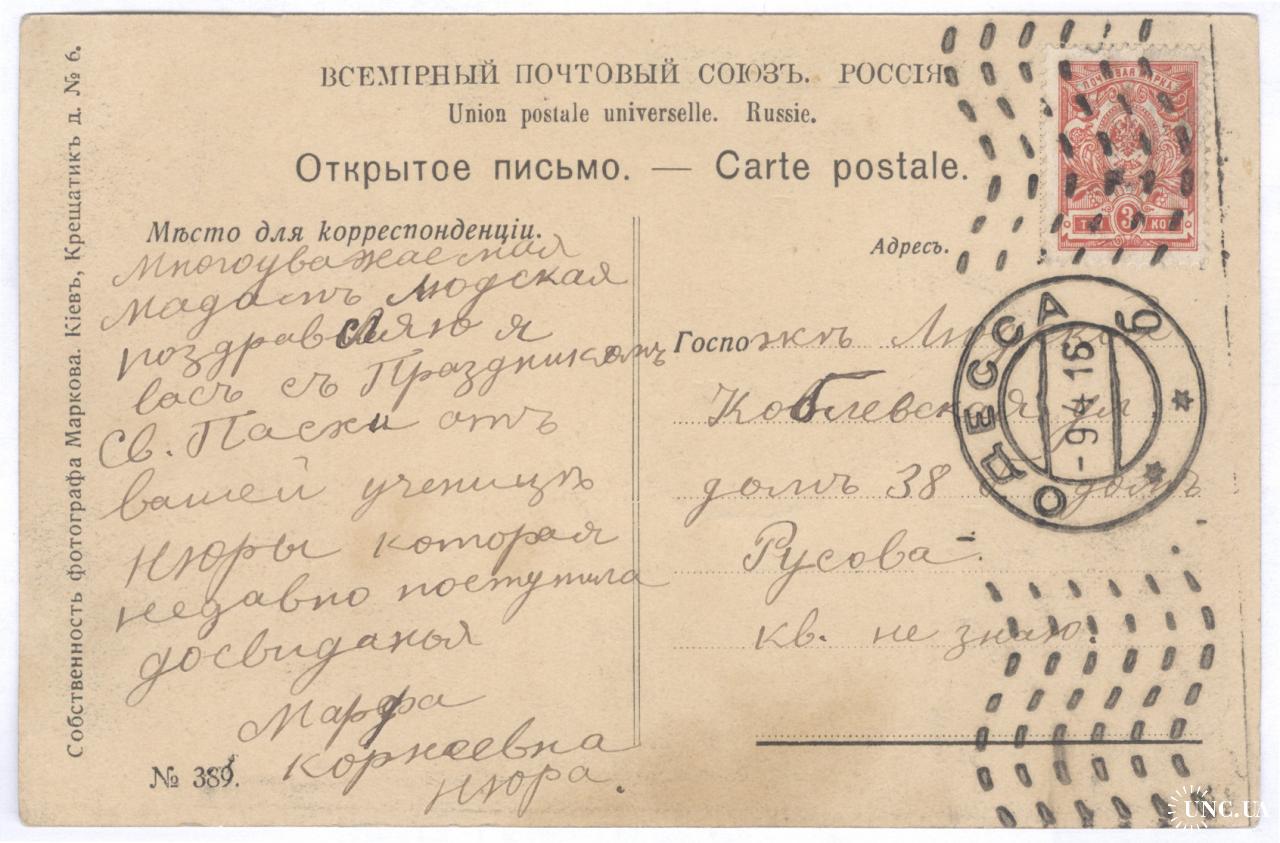 Собственность фотографа Маркова. Кіевъ, Крещатикъ д. № 6.
ВСЕМІРНЫЙ ПОЧТОВЫЙ СОЮЗЪ. РОССІЯ.
Union postale universelle. Russie.
Открытое письмо. — Carte postale.
Мѣсто для корреспонденціи.
Многоуважаемая
мадамъ Людская
поздравляю я
васъ съ Праздникомъ
Св. Пасхи отъ
вашей ученицы
Нюры которая
недавно поступила
досвиданья
Марфа
Корнеевна
Нюра.
№ 389.
Адресъ.
Госпожѣ Людской
Коблевская ул
домъ 38 домъ
Русова
кв. не знаю.
ПОЧТОВАЯ МАРКА
ТРИ 3 КОП
ОДЕССА 6
-9 4 16
UNC.UA